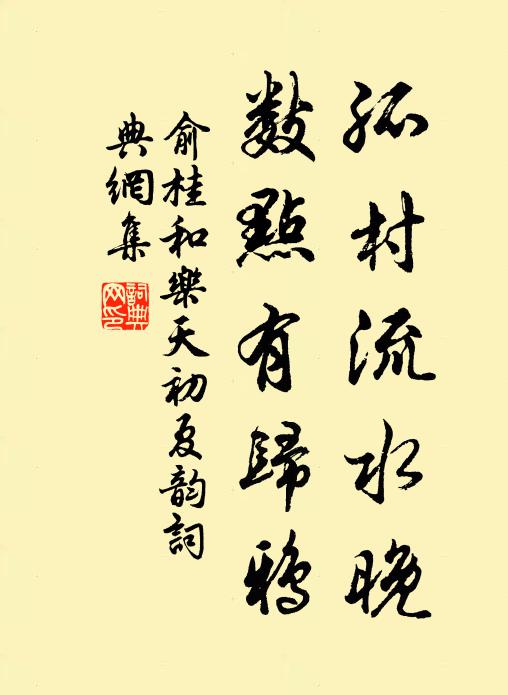 孤村流水晚
數點有歸鴉
俞桂和樂天初夏韵詞
典網集
詞典網印